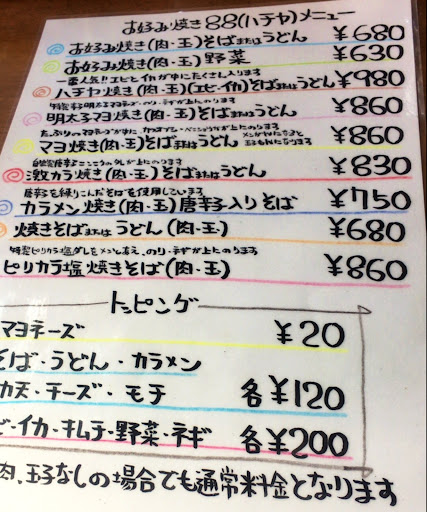 お好み焼き88(ハチヤ)メニュー
お好み焼き(肉・玉)そばまたはうどん ¥680
お好み焼き(肉・玉)野菜 ¥630
一番人気!!エビとイカが中にたくさん入ります
ハチヤ焼き(肉・玉)(エビ・イカ)そばまたはうどん ¥980
明太子マヨ焼き(肉・玉)そばまたはうどん ¥860
マヨ焼き(肉・玉)そばまたはうどん ¥860
激カラ焼き(肉・玉)そばまたはうどん ¥830
唐辛子を練りこんだそばを使用しています
カラメン焼き(肉・玉)唐辛子入りそば ¥750
焼きそばまたはうどん(肉・玉) ¥680
ピリカラ塩焼きそば(肉・玉) ¥860
トッピング
マヨネーズ ¥20
そば・うどん・カラメン
カ天・チーズ・モチ 各¥120
イカ・キムチ・野菜・ネギ 各¥200
肉、玉子なしの場合でも通常料金となります